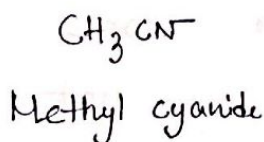 CH₃ CN
Methyl cyanide